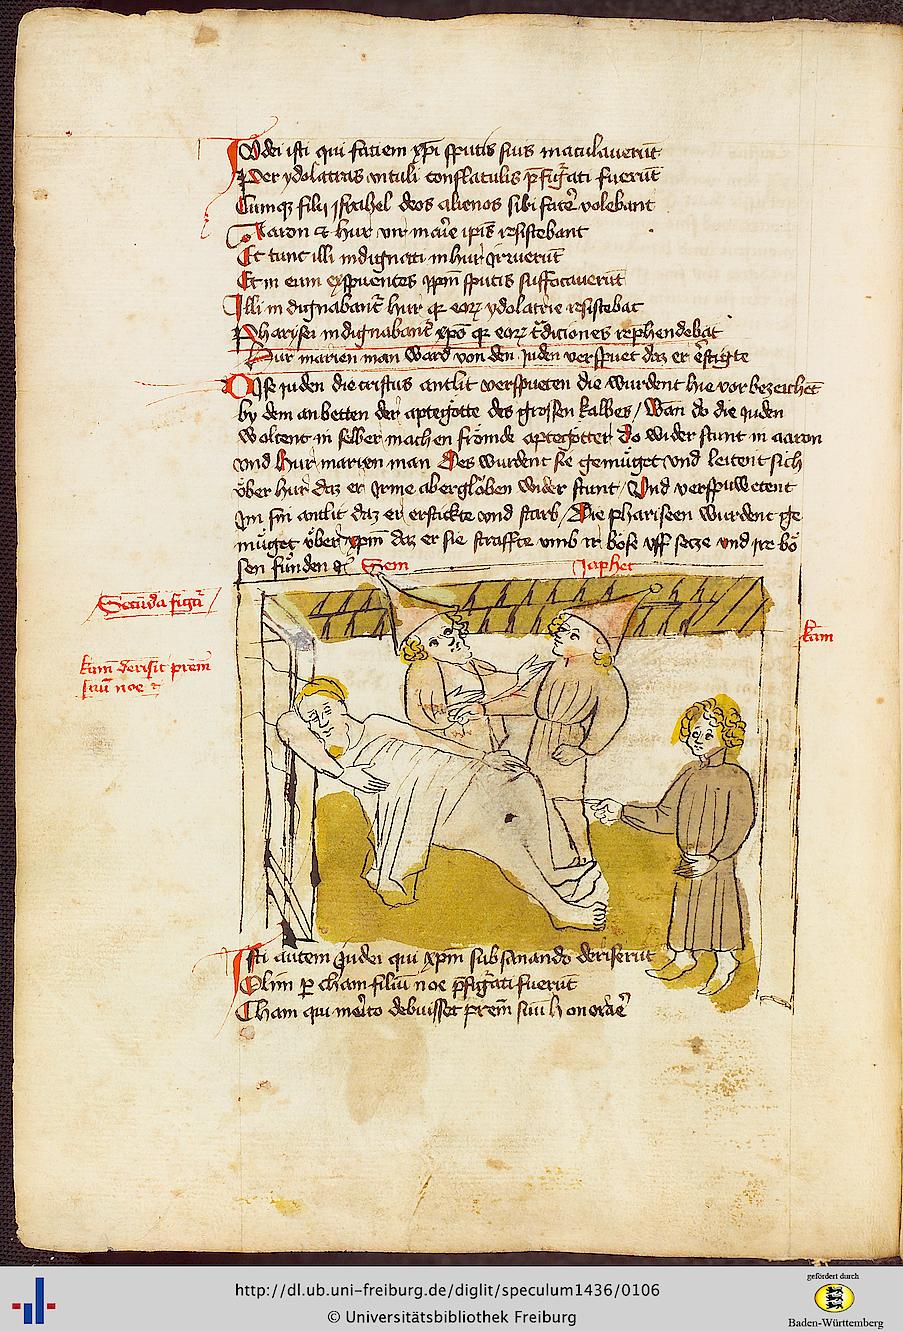 Judei isti qui faciem xp̄i sputis suis maculauerūt
Per ydolatras vituli conflatilis p̄figᵃti fuerūt
Cumqꝫ filij israhel deos alienos sibi facẻ volebant
Aaron et hur vir marie ip̄is resistebant
Et tunc illi indignati in hur irruerūt
Et in eum exspuentes ip̄m sputis suffocauerūt
Illi indignabant̄ hur qꝛ eoꝝ ydolatrie resistebat
Pharisei indignabant̄ xp̄o qꝛ eoꝝ t̄diciones rep̄hendebat
Hur marien man ward von den Juden verspuet daz er erstigte
Dise juden die cristus antlit verspueten die wurdent hie vor bezeichēt
by dem anbetten der aptegötte des grossen kalbes / Wan do die juden
woltent in selber machen frömde aptegötter do wider stunt in aaron
vnd hur marien man Des wurdent sie gemüget vnd leitent sich
über hur daz er irme abergloben wider stunt / Vnd verspuwetent
im sin antlit daz er erstickte vnd starb / Die phariseen wurdent ge
müget über xp̄m daz er sie straffte vmb ir böse vff setze vnd ire bö
sen fünden ⁊c̄
Sem
Japhet
Secūda figᵃ
kam
kam derisit p̄rem
suū noe ⁊
Isti autem Judei qui xp̄m subsanando deriserūt
Olim ꝑ cham filiū noe p̄figᵃti fuerūt
Cham qui mẻito debuisset p̄rem suū honorarẻ
http://dl.ub.uni-freiburg.de/diglit/speculum1436/0106
© Universitätsbibliothek Freiburg
gefördert durch
Baden-Württemberg